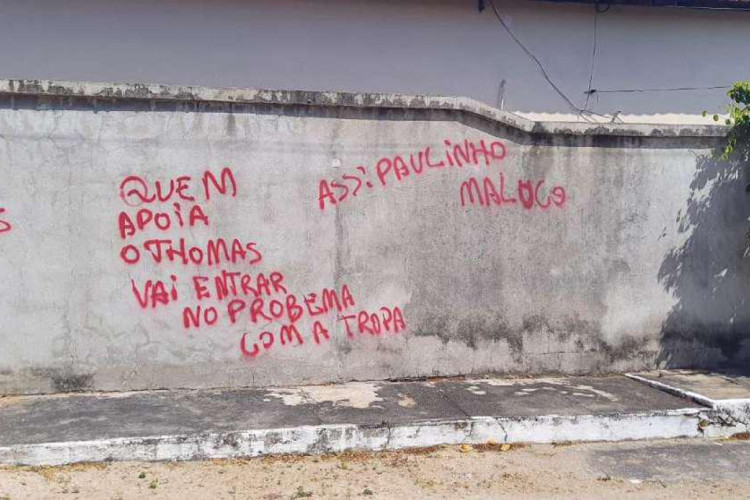 QUEM
APOIA
O THOMAS
VAI ENTRAR
NO PROBEMA
COM A TROPA
ASS: PAULINHO
MALOCO